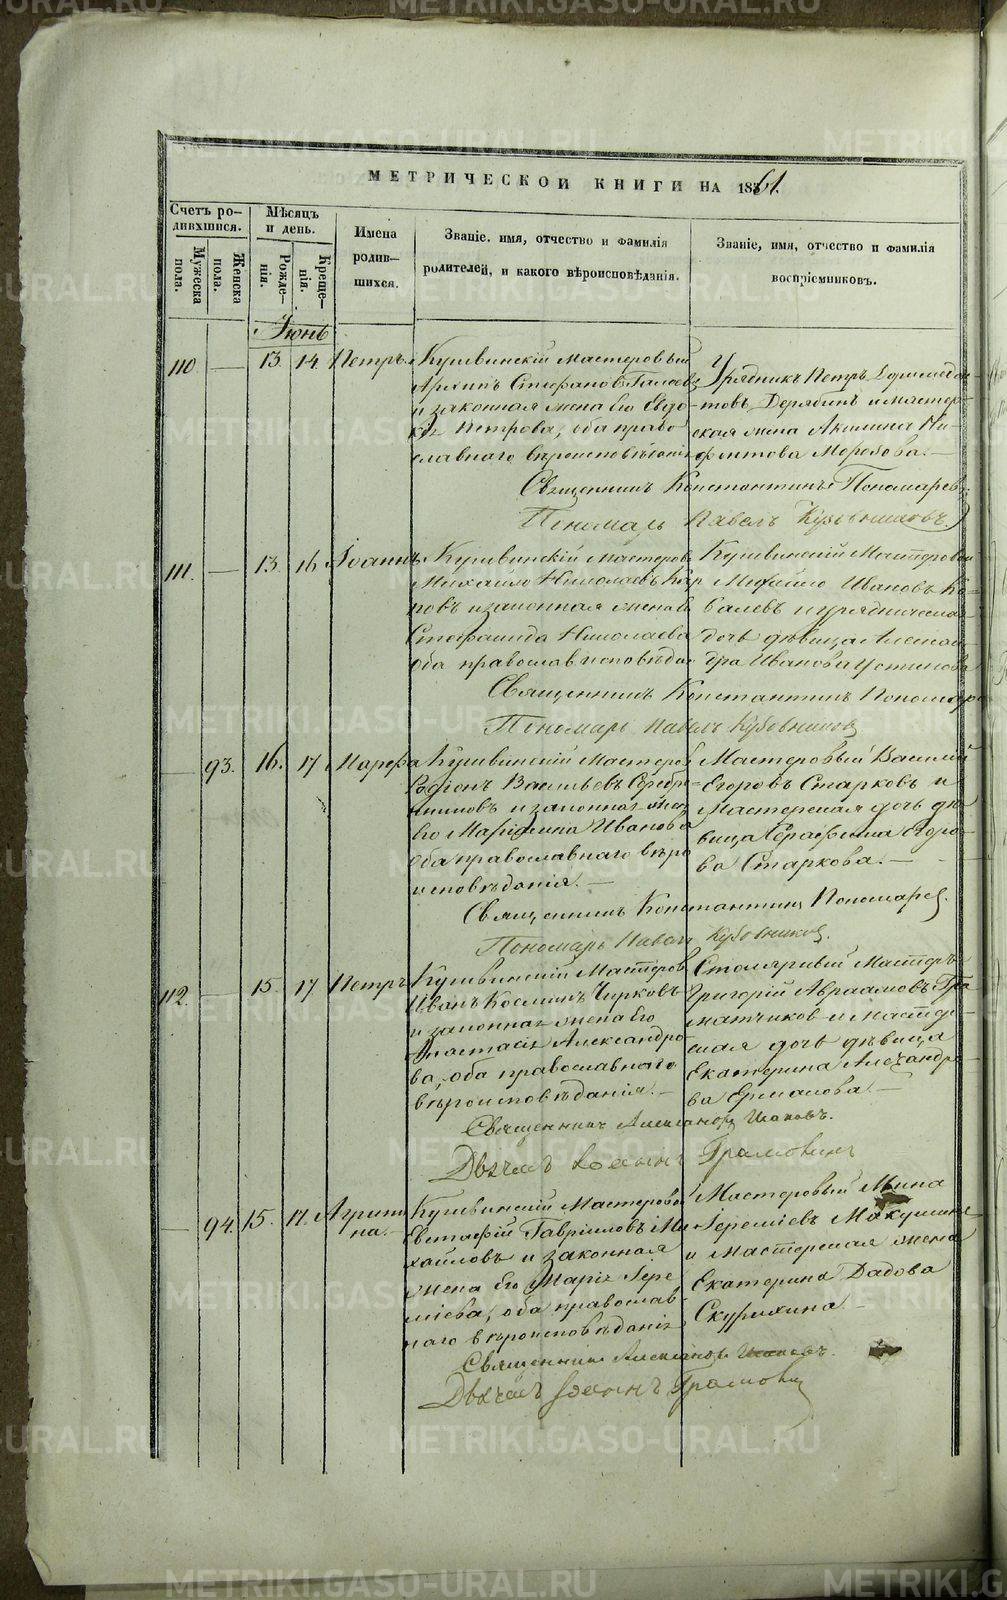 МЕТРИЧЕСКОЙ КНИГИ НА 1861.
Счетъ родившихся.
Мужеска пола.
Женска пола.
Мѣсяцъ и день.
Рожденія.
Крещенія.
Имена родившихся.
Званіе, имя, отчество и фамилія родителей, и какого вѣроисповѣданія.
Званіе, имя, отчество и фамилія воспріемниковъ.
Июнь
110 — 13. 14. Петръ.
Кушвинскій мастеровый
Архипъ Стефановъ
и законная жена его Евдо-
кія Петрова, оба право-
славнаго вѣроисповѣданія
Урядникъ Петръ
товъ Дерябинъ и мастер-
ская жена Акилина
Морозова. —
Священникъ Константинъ Пономаревъ
Пономарь Павелъ Кузовниковъ
111. — 13. 16. Іоаннъ.
Кушвинскій мастеров
Михайло Николаевъ Кар
повъ и законная жена его
Стефанида Николаева
оба православ исповѣда
Кушвинскій Мастеровой
Михайло Ивановъ Ко-
валевъ и урядническая
дочь дѣвица Алексан
дра Иванова Устинова
Священникъ Константинъ Пономаре
Пономарь Павелъ Кузовников
— 93. 16. 17 Марфа
Кушвинскій Мастеров
Родіонъ Васильевъ Серебре
нниковъ и законная жена
его Маріамна Иванова
оба православнаго вѣро
исповѣданія. —
Мастеровый Василий
Егоровъ Старковъ и
Мастерская дочь дѣ
вица Серафима Егоро-
ва Старкова. —
Священникъ Константинъ Пономарев.
Пономарь Павел Кузовников.
112. — 15. 17 Петръ
Кушвинскій Мастеров
Иванъ Косминъ Чирковъ
и законная жена его
Анастасія Александро-
ва, оба православнаго
вѣроисповѣданія. —
Столярный Мастеръ
Григорій Авраамовъ Гра
матчиковъ и мастер-
ская дочь дѣвица
Екатерина Александро-
ва Ермакова —
Священникъ Александръ
Дьячекъ Косминъ
— 94. 15. 17. Агрипи
на.
Кушвинскій Мастеровой
Евстафій Гавріиловъ Ми
хайловъ и законная
жена его Марія Іере
міева, оба православ-
наго вѣроисповѣданія
Мастеровый Мина
Іереміевъ Макушинъ
и Мастерская жена
Екатерина Дадова
Скурихина —
Священник Александръ
Дьячекъ Косминъ
METRIKI.GASO-URAL.RU